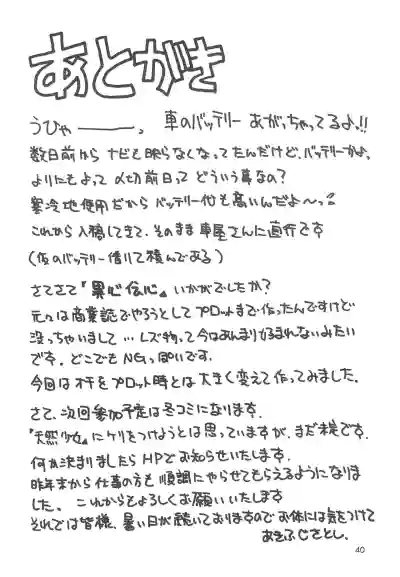 あとがき
うひゃ―――。車のバッテリーあがっちゃってるよ!!
数日前からナビも映らなくなってたんだけど、バッテリーかよ、
よりにもよって〆切前日ってどういう事なの?
寒冷地使用だからバッテリー代も高いんだよ〜っ
これから入稿してきて、そのまま車屋さんに直行です
(仮のバッテリー借りて積んである)
さてさて『異心伝心』いかがでしたか?
元々は商業誌でやろうとしてプロットまで作ったんですけど
没っちゃいまして…レズ物って今はあんまり好まれないみたい
です。どこでもNGっぽいです。
今回はオチをプロット時とは大きく変えて作ってみました。
さて、次回参加予定は冬コミになります。
『天然少女』にケリをつけようとは思っていますが、まだ未定です。
何か決まりましたらHPでお知らせいたします。
昨年末から仕事の方も順調にやらせてもらえるようになりま
した。これからもよろしくお願いいたします
それでは皆様、暑い日が続いておりますのでお体には気をつけて
あきふじさとし。
40